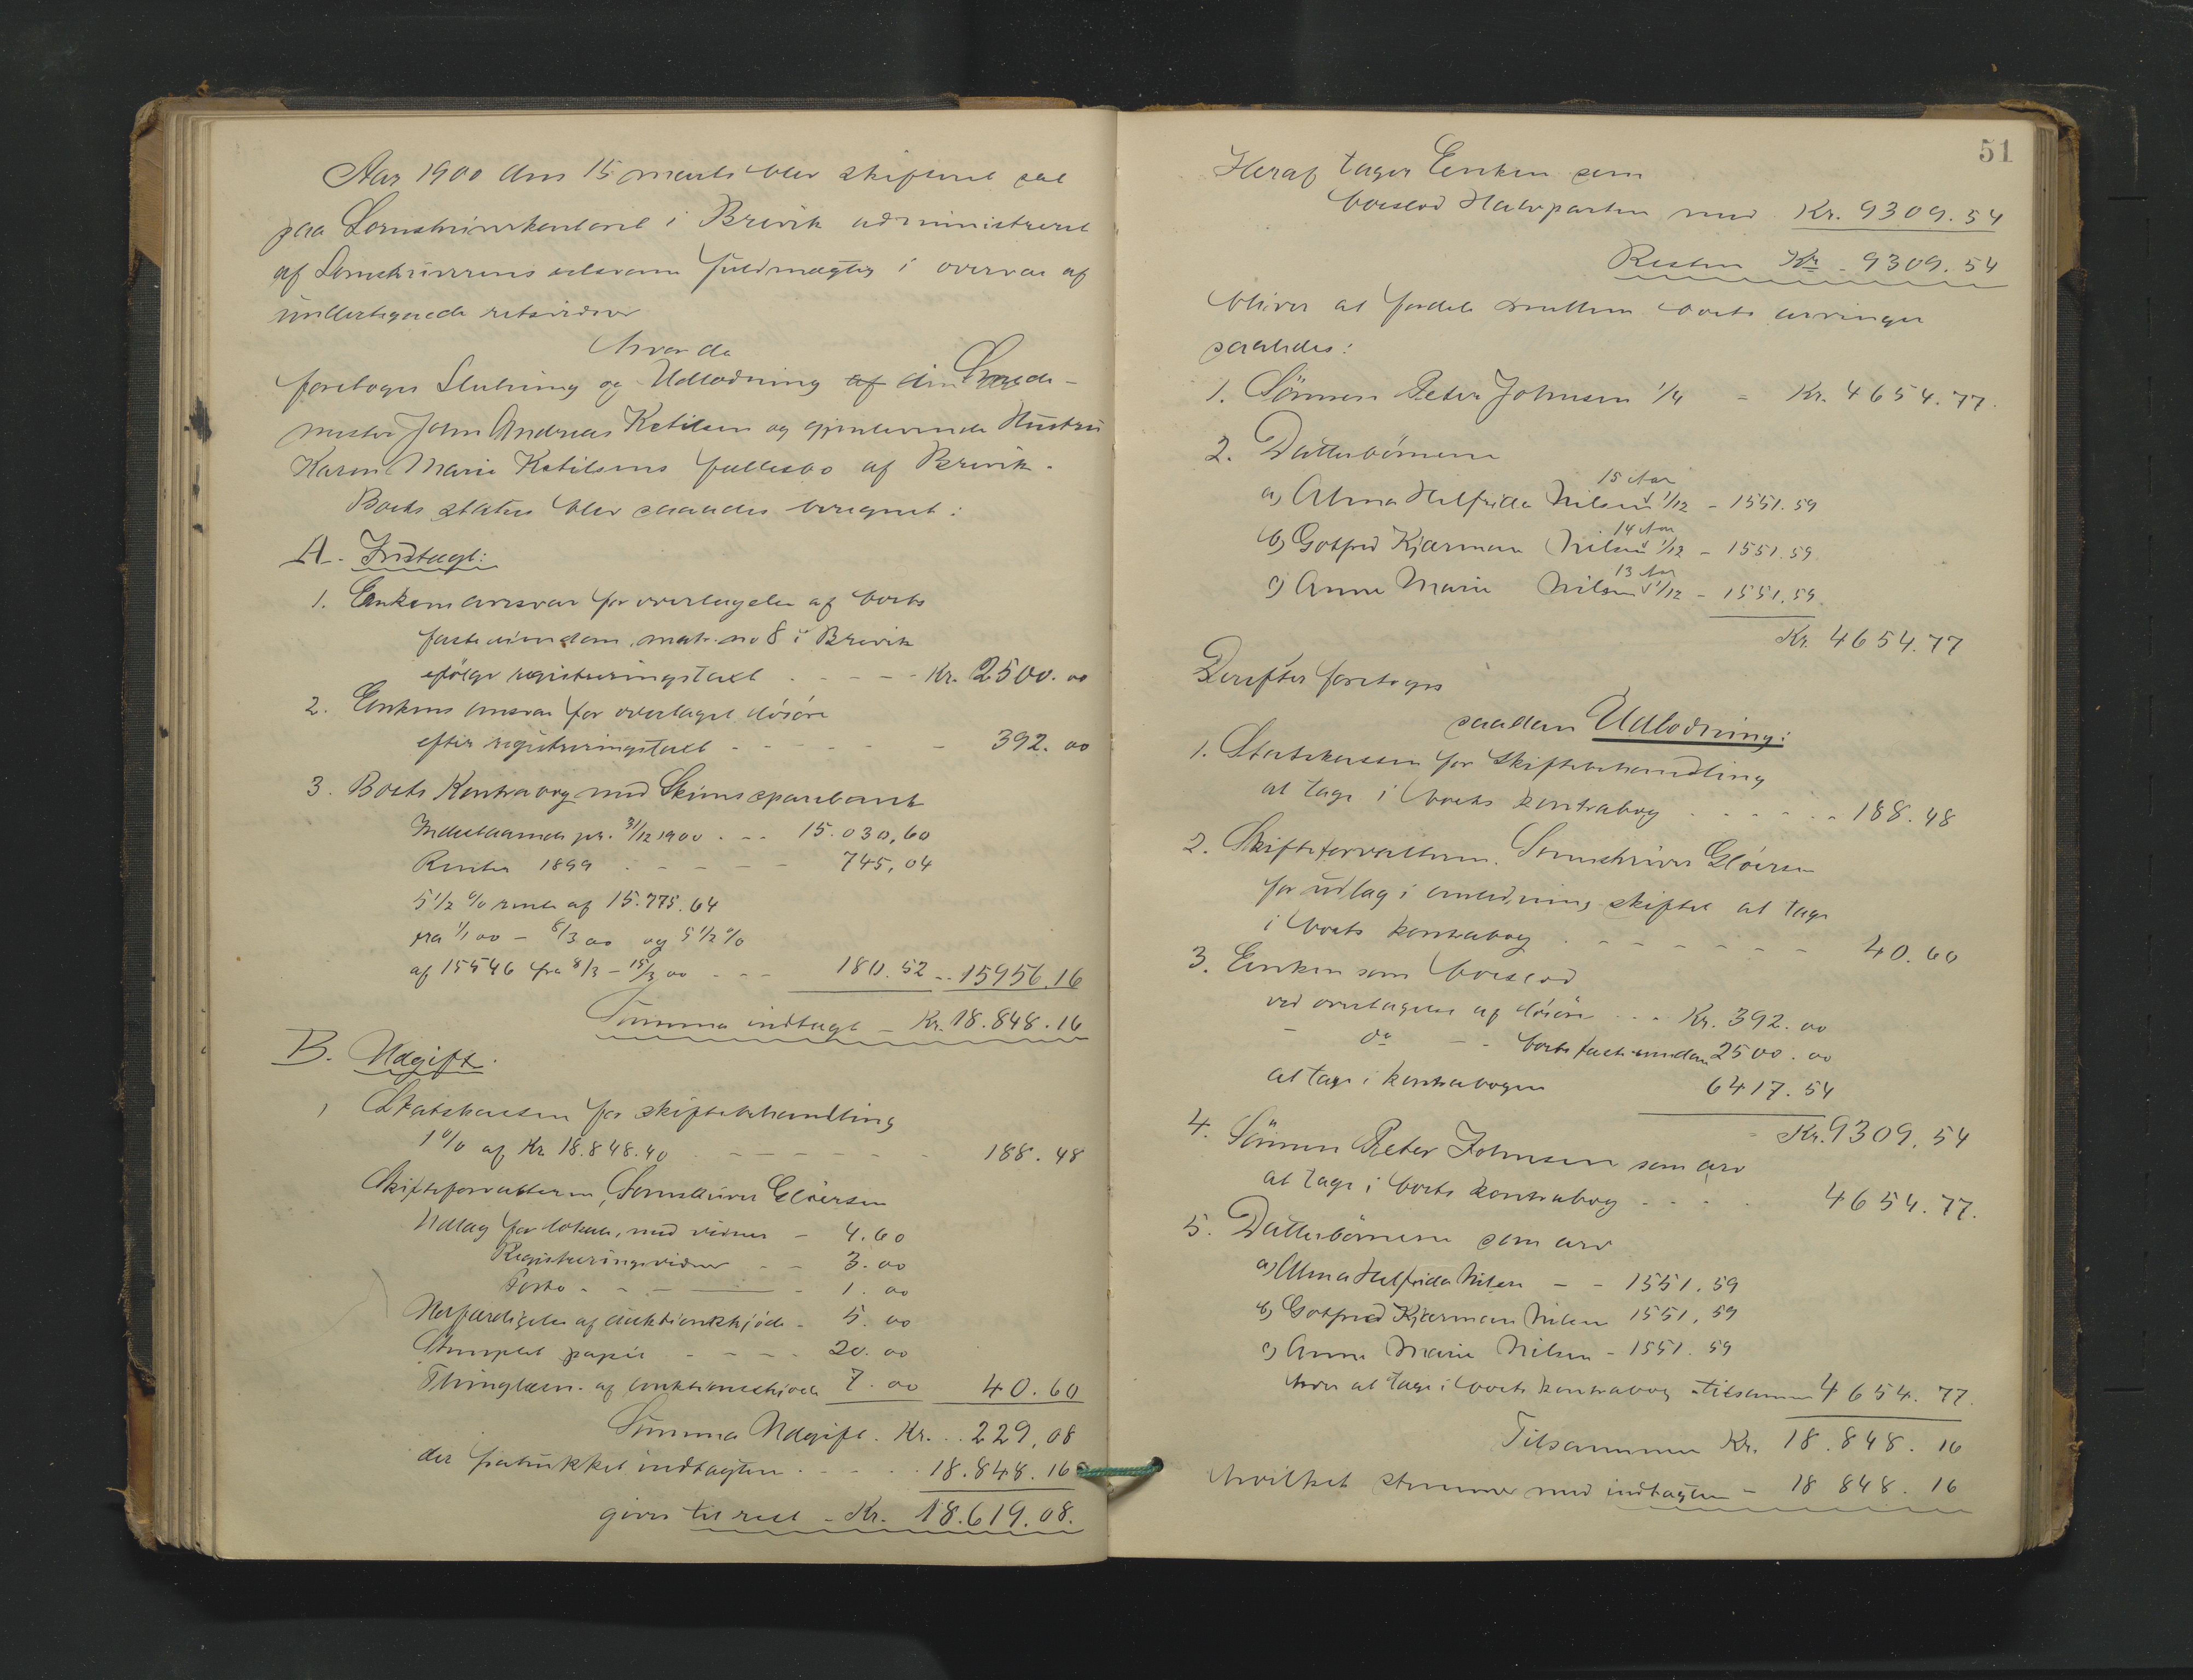 Aar 1900 den 15 marts blev skifteret sat
paa Sorenskriverkontoret i Brevik administreret
af Sorenskriverens edsvorne fuldmægtig i overvær af
undertegnede retsvidner
Hvorda
foretoges Slutning og Udlodning af den Smede-
mester John Andreas Ketilsen og gjenlevende Hustru
Karen Marie Ketilsens fællesbo af Brevik.
Boets status blev saaledes beregnet:
A. Indtægt:
1. Enkens ansvar for overtagelse af boets
faste eiendom, matr. no 8 i Brevik
ifølge registreringstaxt - - - - Kr. 2500.00
2. Enkens ansvar for overtaget løsøre
efter registreringstaxt - - - - - 392.00
3. Boets Kontrabog med Skiens sparebank
Indestaaende pr. 31/12 1900 . -- 15.030,60
Renter 1899 - - - - 745,04
5 1/2 % rente af 15.775.64
fra 1/1 00 - 8/3 00 og 5 1/2 %
af 15546 fra 8/3 - 15/3 00 - - - 180.52 -- 15956.16
Summa indtægt - Kr. 18.848.16
B. Udgift.
1 Statskassen for skiftebehandling
1 % af Kr 18.848.40 - - - - - - 188.48
Skifteforvalteren, Sorenskriver Gløersen
Udlag for lokale, med vidner - 4.60
Registreringsvidner - - 3.00
Porto - - - - 1.00
Udfærdigelse af auktionsskjøde - 5.00
Stemplet papir - - - - 20.00
Thinglæsn. af auktionsskjøde 7.00 40.60
Summa Udgift. Kr. .. 229,08
der fratrukket indtægten . - - . . 18.848.16
giver til rest - Kr. 18.619.08.
51
Heraf tager Enken som
boeslod Halvparten med Kr. 9309.54
Resten Kr. 9309.54
bliver at fordele mellem boets arvinger
saaledes:
1. Sønnen Peter Johnsen 1/4 - Kr. 4654.77.
2. Datterbørnene
15 Aar
a) Alma Helfrida Nilsen 1/12 - 1551.59
14 Aar
b) Gotfred Kjærman Nilsen 1/12 - 1551.59.
13 Aar
c) Anna Marie Nilsen 1/12 - 1551.59.
Kr. 4654.77
Derefter foretoges
saadan Udlodning:
1. Statskassen for Skiftebehandling
at tage i boets kontrabog . - - - - - 188.48
2. Skifteforvalteren. Sorenskriver Gløersen
for udlag i anledning skiftet at tage
i boets kontrabog . - - - - - - - 40.60
3. Enken som boeslod
ved overtagelse af løsøre - - - Kr. 392.00
- do - - boets faste eiendom 2500.00
at tage i kontrabogen 6417.54
- Kr. 9309.54
4. Sønnen Peter Johnsen som arv
at tage i boets kontrabog - - . . 4654.77.
5. Datterbørnene som arv
a) Alma Helfrida Nilsen - - 1551.59
b) Gotfred Kjærman Nilsen 1551.59
c) Anna Marie Nilsen - 1551.59
hver at tage i boets kontrabog tilsammen 4654.77.
Tilsammen Kr. 18.848.16
hvilket stemmer med indtægten - 18 848.16